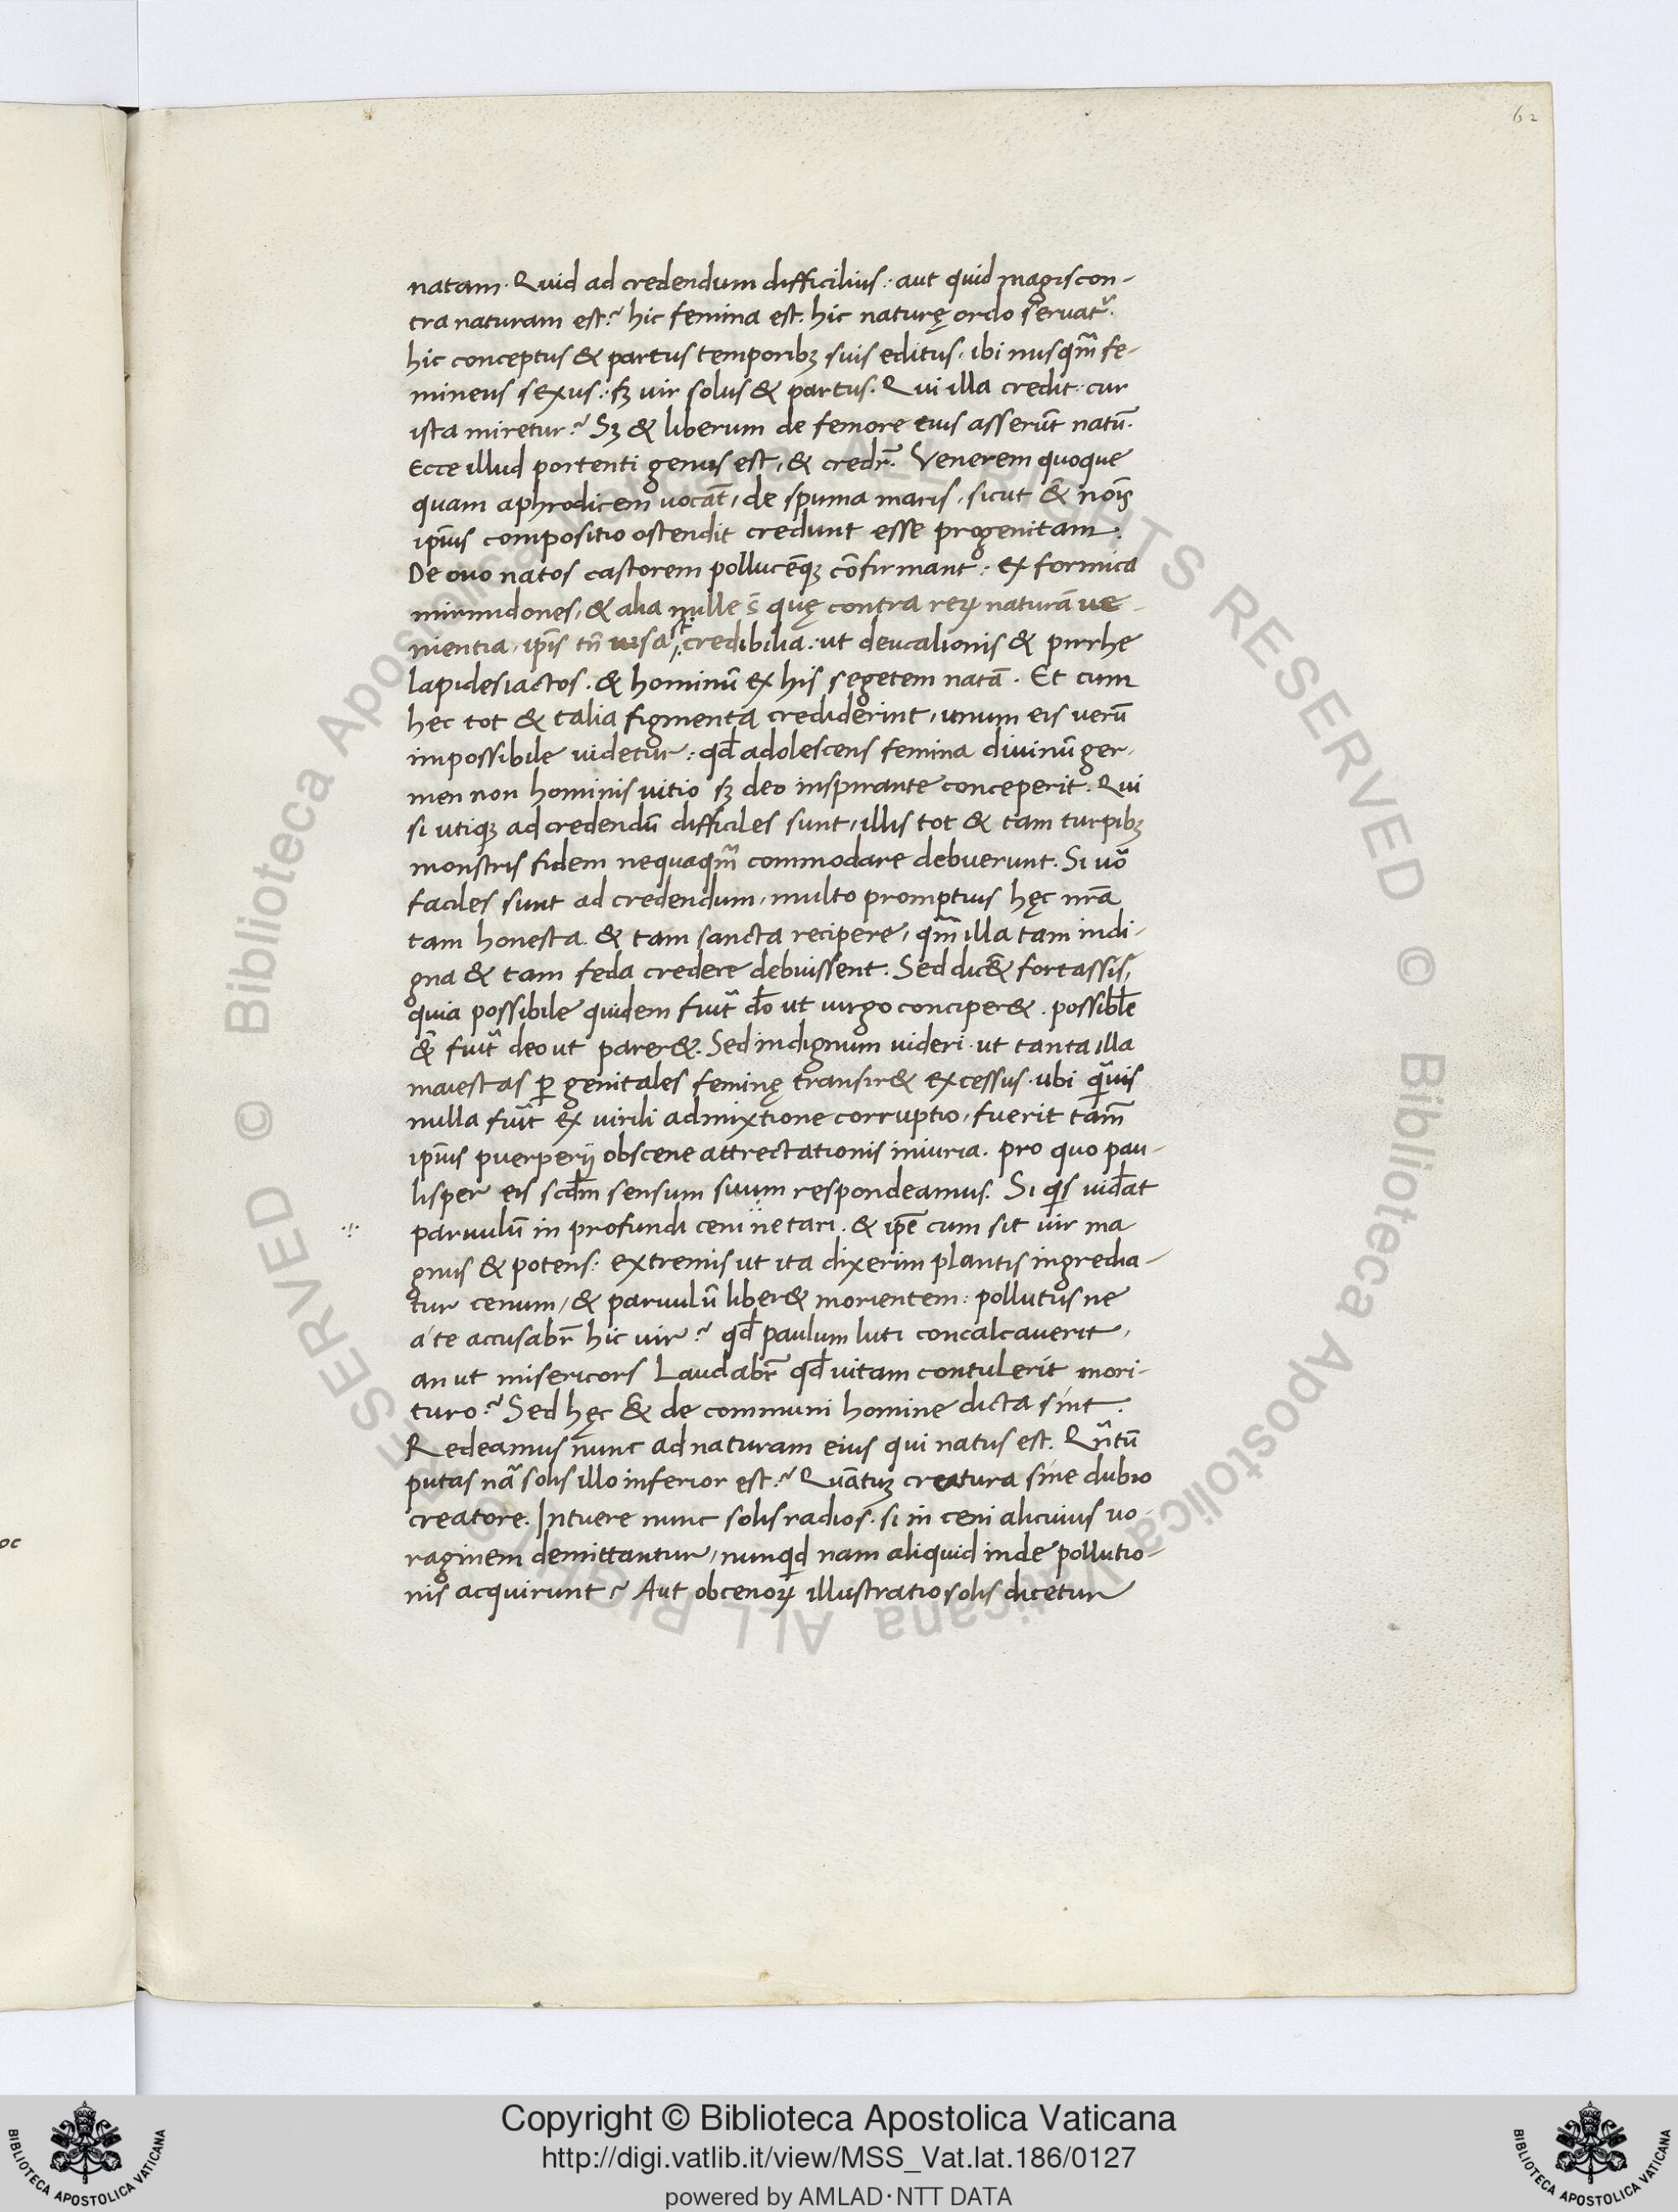 62
natam. Quid ad credendum difficilius: aut quid magis con-
tra naturam est? hic femina est. hic naturę ordo seruat᷑.
hic conceptus & partus temporibꝫ suis editus, ibi nusqm̃ fe-
mineus sexus: sꝫ uir solus & partus. Qui illa credit: cur
ista miretur? Sꝫ & liberum de femore eius asserūt natū.
Ecce illud portenti genus est, & credr̃. Venerem quoque
quam aphrodicem uocāt, de spuma maris, sicut & noīs
ip̄ius compositio ostendit credunt esse progenitam.
De ouo natos castorem pollucēqꝫ cōfirmant: ex formica
mirmidones, & alia mille s̄ quę contra reꝝ naturā ue-
nientia, ip̄is tñ uisa st̄ credibilia: ut deucalionis & pirrhe
lapides iactos. & hominū ex his segetem natā. Et cum
hec tot & talia figmenta crediderint, unum eis uerū
impossibile uidetur: qđ adolescens femina diuinū ger-
men non hominis uitio sꝫ deo inspirante conceperit. Qui
si utiqꝫ ad credendū difficiles sunt, illis tot & tam turpibꝫ
monstris fidem nequaqm̃ commodare debuerunt. Si uō
faciles sunt ad credendum, multo promptius hęc nr̃a
tam honesta & tam sancta recipere, qm̃ illa tam indi-
gna & tam feda credere debuissent. Sed dic& fortassis,
quia possibile quidem fuit᷑ dō ut uirgo conciper&. possibłe
& fuit᷑ deo ut parer&. Sed indignum uideri ut tanta illa
maiestas ꝑ genitales feminę transir& excessus. ubi q̃uis
nulla fuit᷑ ex uirili admixtione corruptio, fuerit tam̃
ip̄ius puerperij obscene attrectationis iniuria. pro quo pau-
lisper eis scđm sensum suum respondeamus. Si qis uiđat
paruulū in profundi ceni necari. & ip̄e cum sit uir ma
gnus & potens: extremis ut ita dixerim plantis ingredia-
tur cenum, & paruulū liber& morientem: pollutus ne
a te accusabr̃ hic uir? qđ paulum luti concalcauerit,
an ut misericors Laudabr̃ qđ uitam contulerit mori-
turo? Sed hęc & de communi homine dicta sint.
Redeamus nunc ad naturam eius qui natus est. Qñtū
putas nā solis illo inferior est? Quātuꝫ creatura sine dubio
creatore. Intuere nunc solis radios. si in ceni alicuius uo-
raginem demittantur, nunqd nam aliquid inde pollutio-
nis acquirunt? Aut obcenoꝝ illustratio solis dicetur
oc
Copyright © Biblioteca Apostolica Vaticana
http://digi.vatlib.it/view/MSS_Vat.lat.186/0127
powered by AMLAD·NTT DATA
BIBLIOTECA APOSTOLICA VATICANA
BIBLIOTECA APOSTOLICA VATICANA
© Biblioteca Apostolica Vaticana ALL RIGHTS RESERVED
© Biblioteca Apostolica Vaticana ALL RIGHTS RESERVED